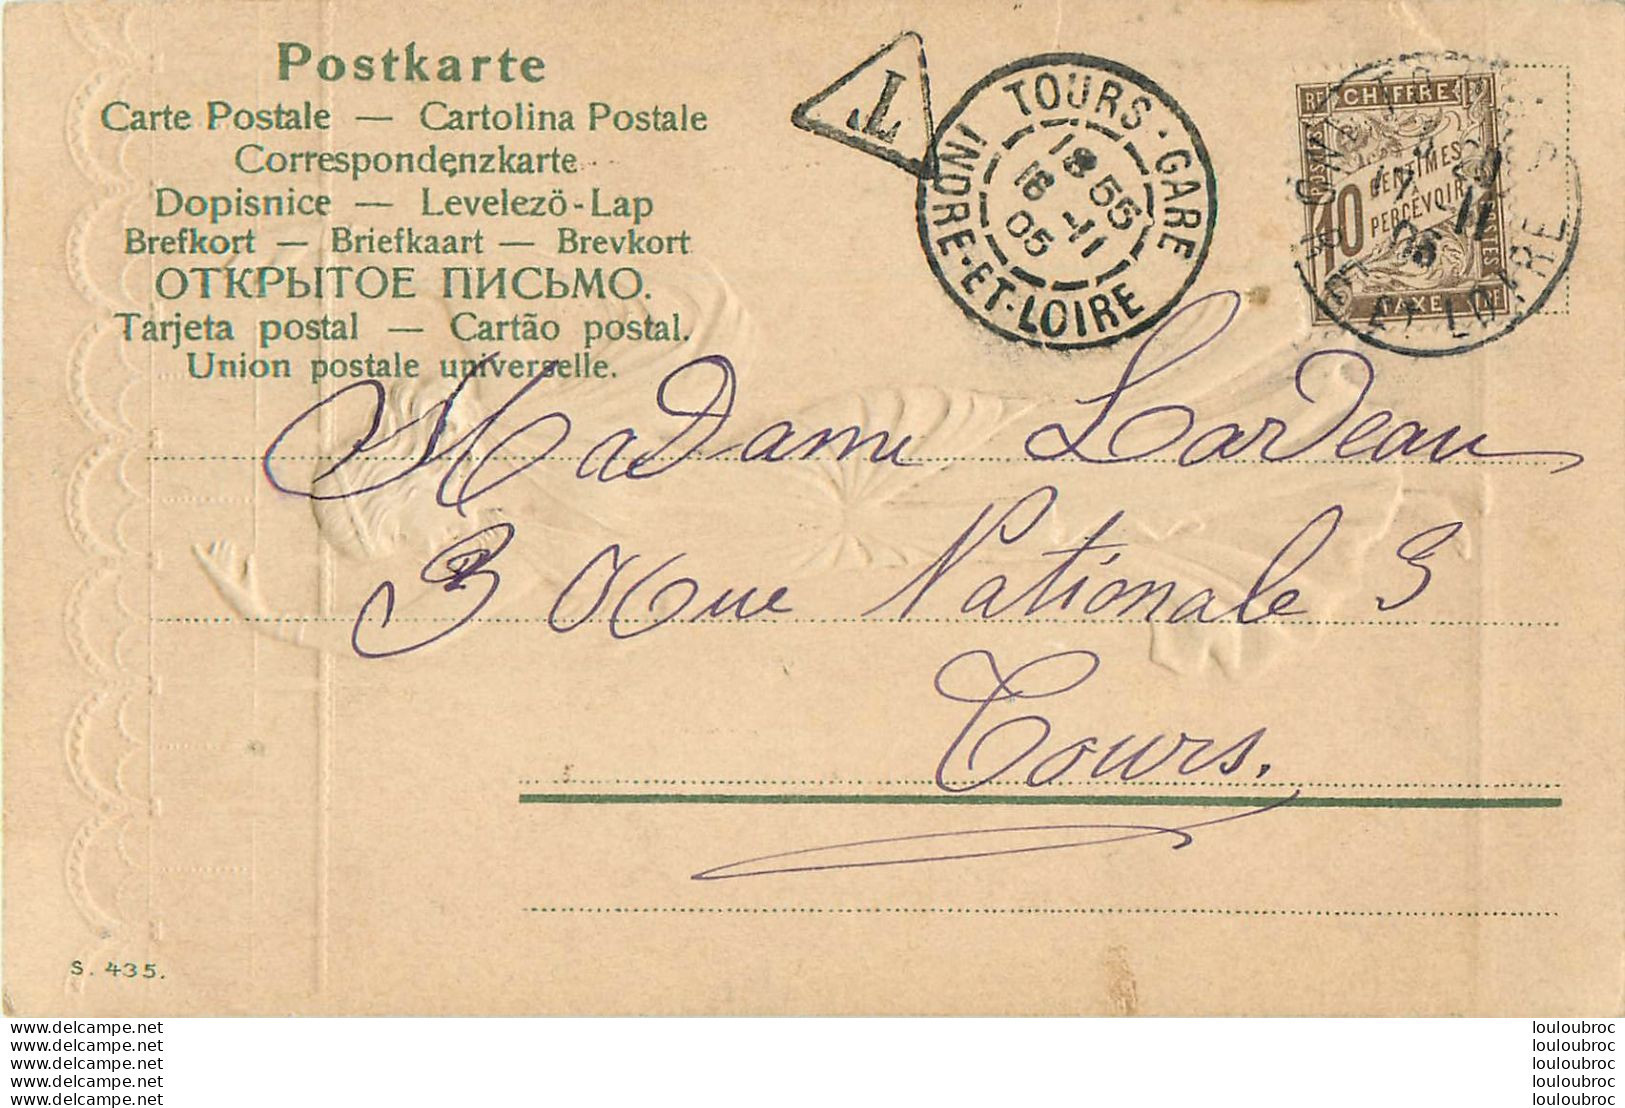 Postkarte
Carte Postale — Cartolina Postale
Correspondenzkarte
Dopisnice — Levelezö-Lap
Brefkort — Briefkaart — Brevkort
ОТКРЫТОЕ ПИСЬМО.
Tarjeta postal — Cartão postal.
Union postale universelle.
T
TOURS-GARE
18 55
16 -11
05
INDRE-ET-LOIRE
RF CHIFFRE
10 CENTIMES
À
PERCEVOIR
TAXE RF
17 11
05
ET LOIRE
Madame Lardeau
3 Rue Nationale 3
Tours.
S. 435.
www.delcampe.net
www.delcampe.net
www.delcampe.net
www.delcampe.net
www.delcampe.net
louloubroc
louloubroc
louloubroc
louloubroc
louloubroc